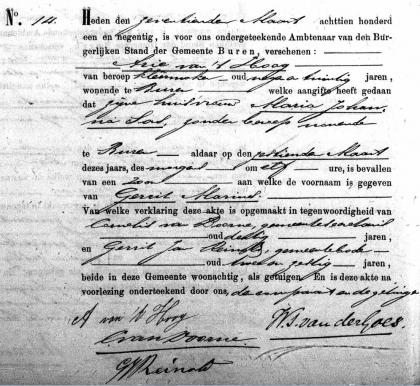 N°. 14. Heden den zeventienden Maart achttien honderd
een en negentig, is voor ons ondergeteekende Ambtenaar van den Bur-
gerlijken Stand der Gemeente Buren, verschenen:
Arie van 't Hoog
van beroep kleermaker oud negen en twintig jaren,
wonende te Buren welke aangifte heeft gedaan
dat zijne huisvrouw Maria Johan-
na zonder beroep wonende
te Buren aldaar op den zestienden Maart
dezes jaars, des morgens om elf ure, is bevallen
van een zoon aan welke de voornaam is gegeven
van Gerrit Marinus
Van welke verklaring deze akte is opgemaakt in tegenwoordigheid van
Cornelis van Doorne, gemeentesecretaris
oud dertig jaren,
en Gerrit Jan Reinold, gemeentebode
oud jaren,
beide in deze Gemeente woonachtig, als getuigen. En is deze akte na
voorlezing onderteekend door ons, de comparant en de getuigen
A van 't Hoog
C van Doorne W. S. van der Goes.
GJ Reinold